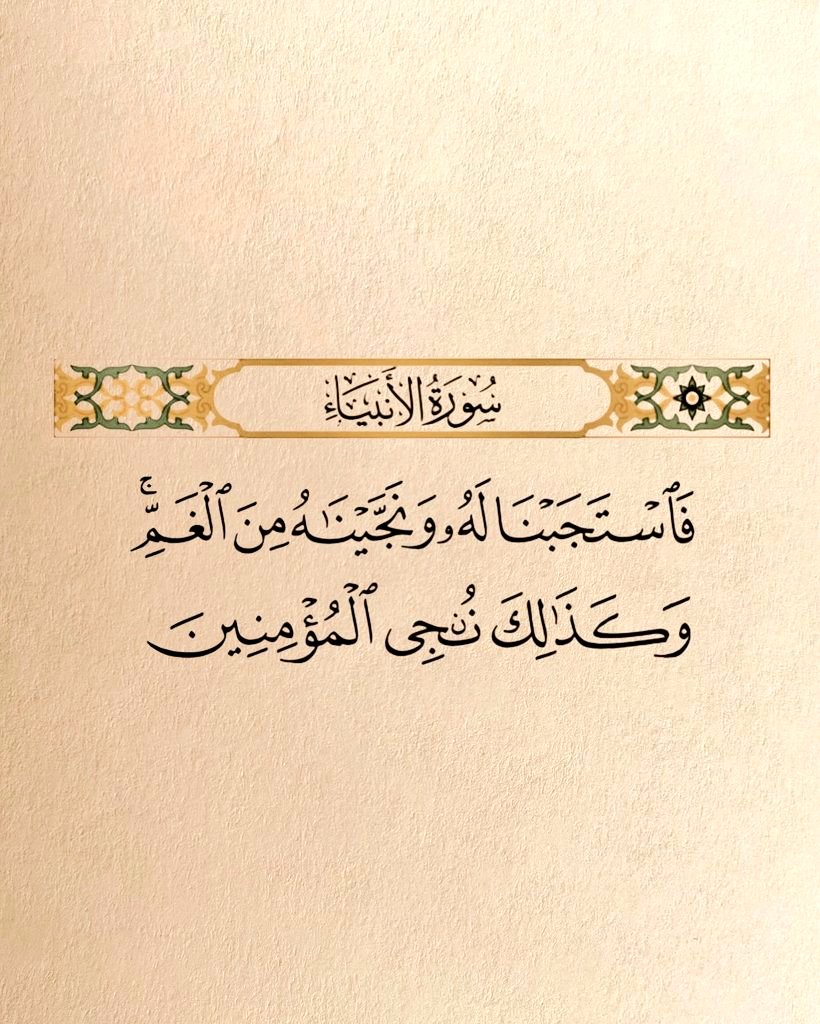 سُورَةُ الأَنبِيَاءِ
فَٱسْتَجَبْنَا لَهُۥ وَنَجَّيْنَٰهُ مِنَ ٱلْغَمِّ ۚ
وَكَذَٰلِكَ نُۨجِى ٱلْمُؤْمِنِينَ